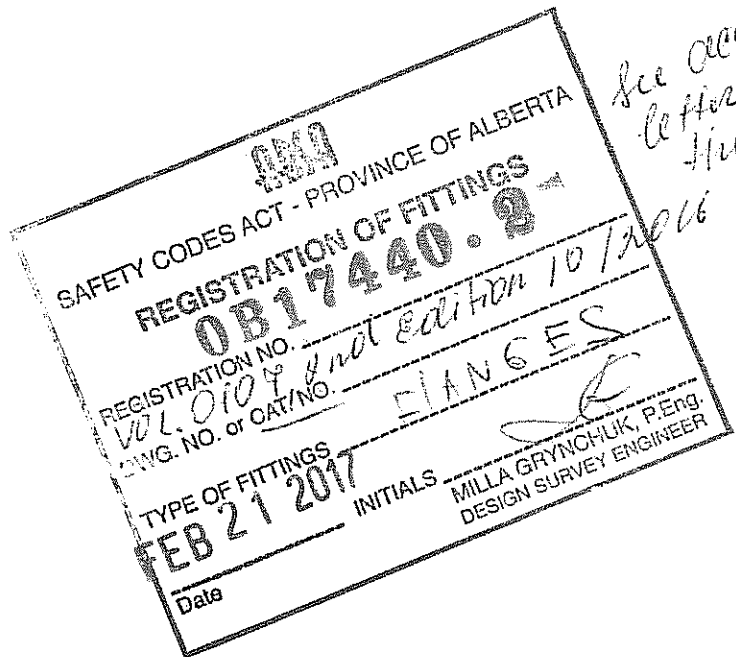 See
letter
ABSA
SAFETY CODES ACT - PROVINCE OF ALBERTA
REGISTRATION OF FITTINGS
0B17440.2
REGISTRATION NO.
VOL. 0107 2nd Edition 10/2016
DWG. NO. or CAT/NO.
FLANGES
TYPE OF FITTINGS
FEB 21 2017
INITIALS
MILLA GRYNCHUK, P.Eng.
DESIGN SURVEY ENGINEER
Date